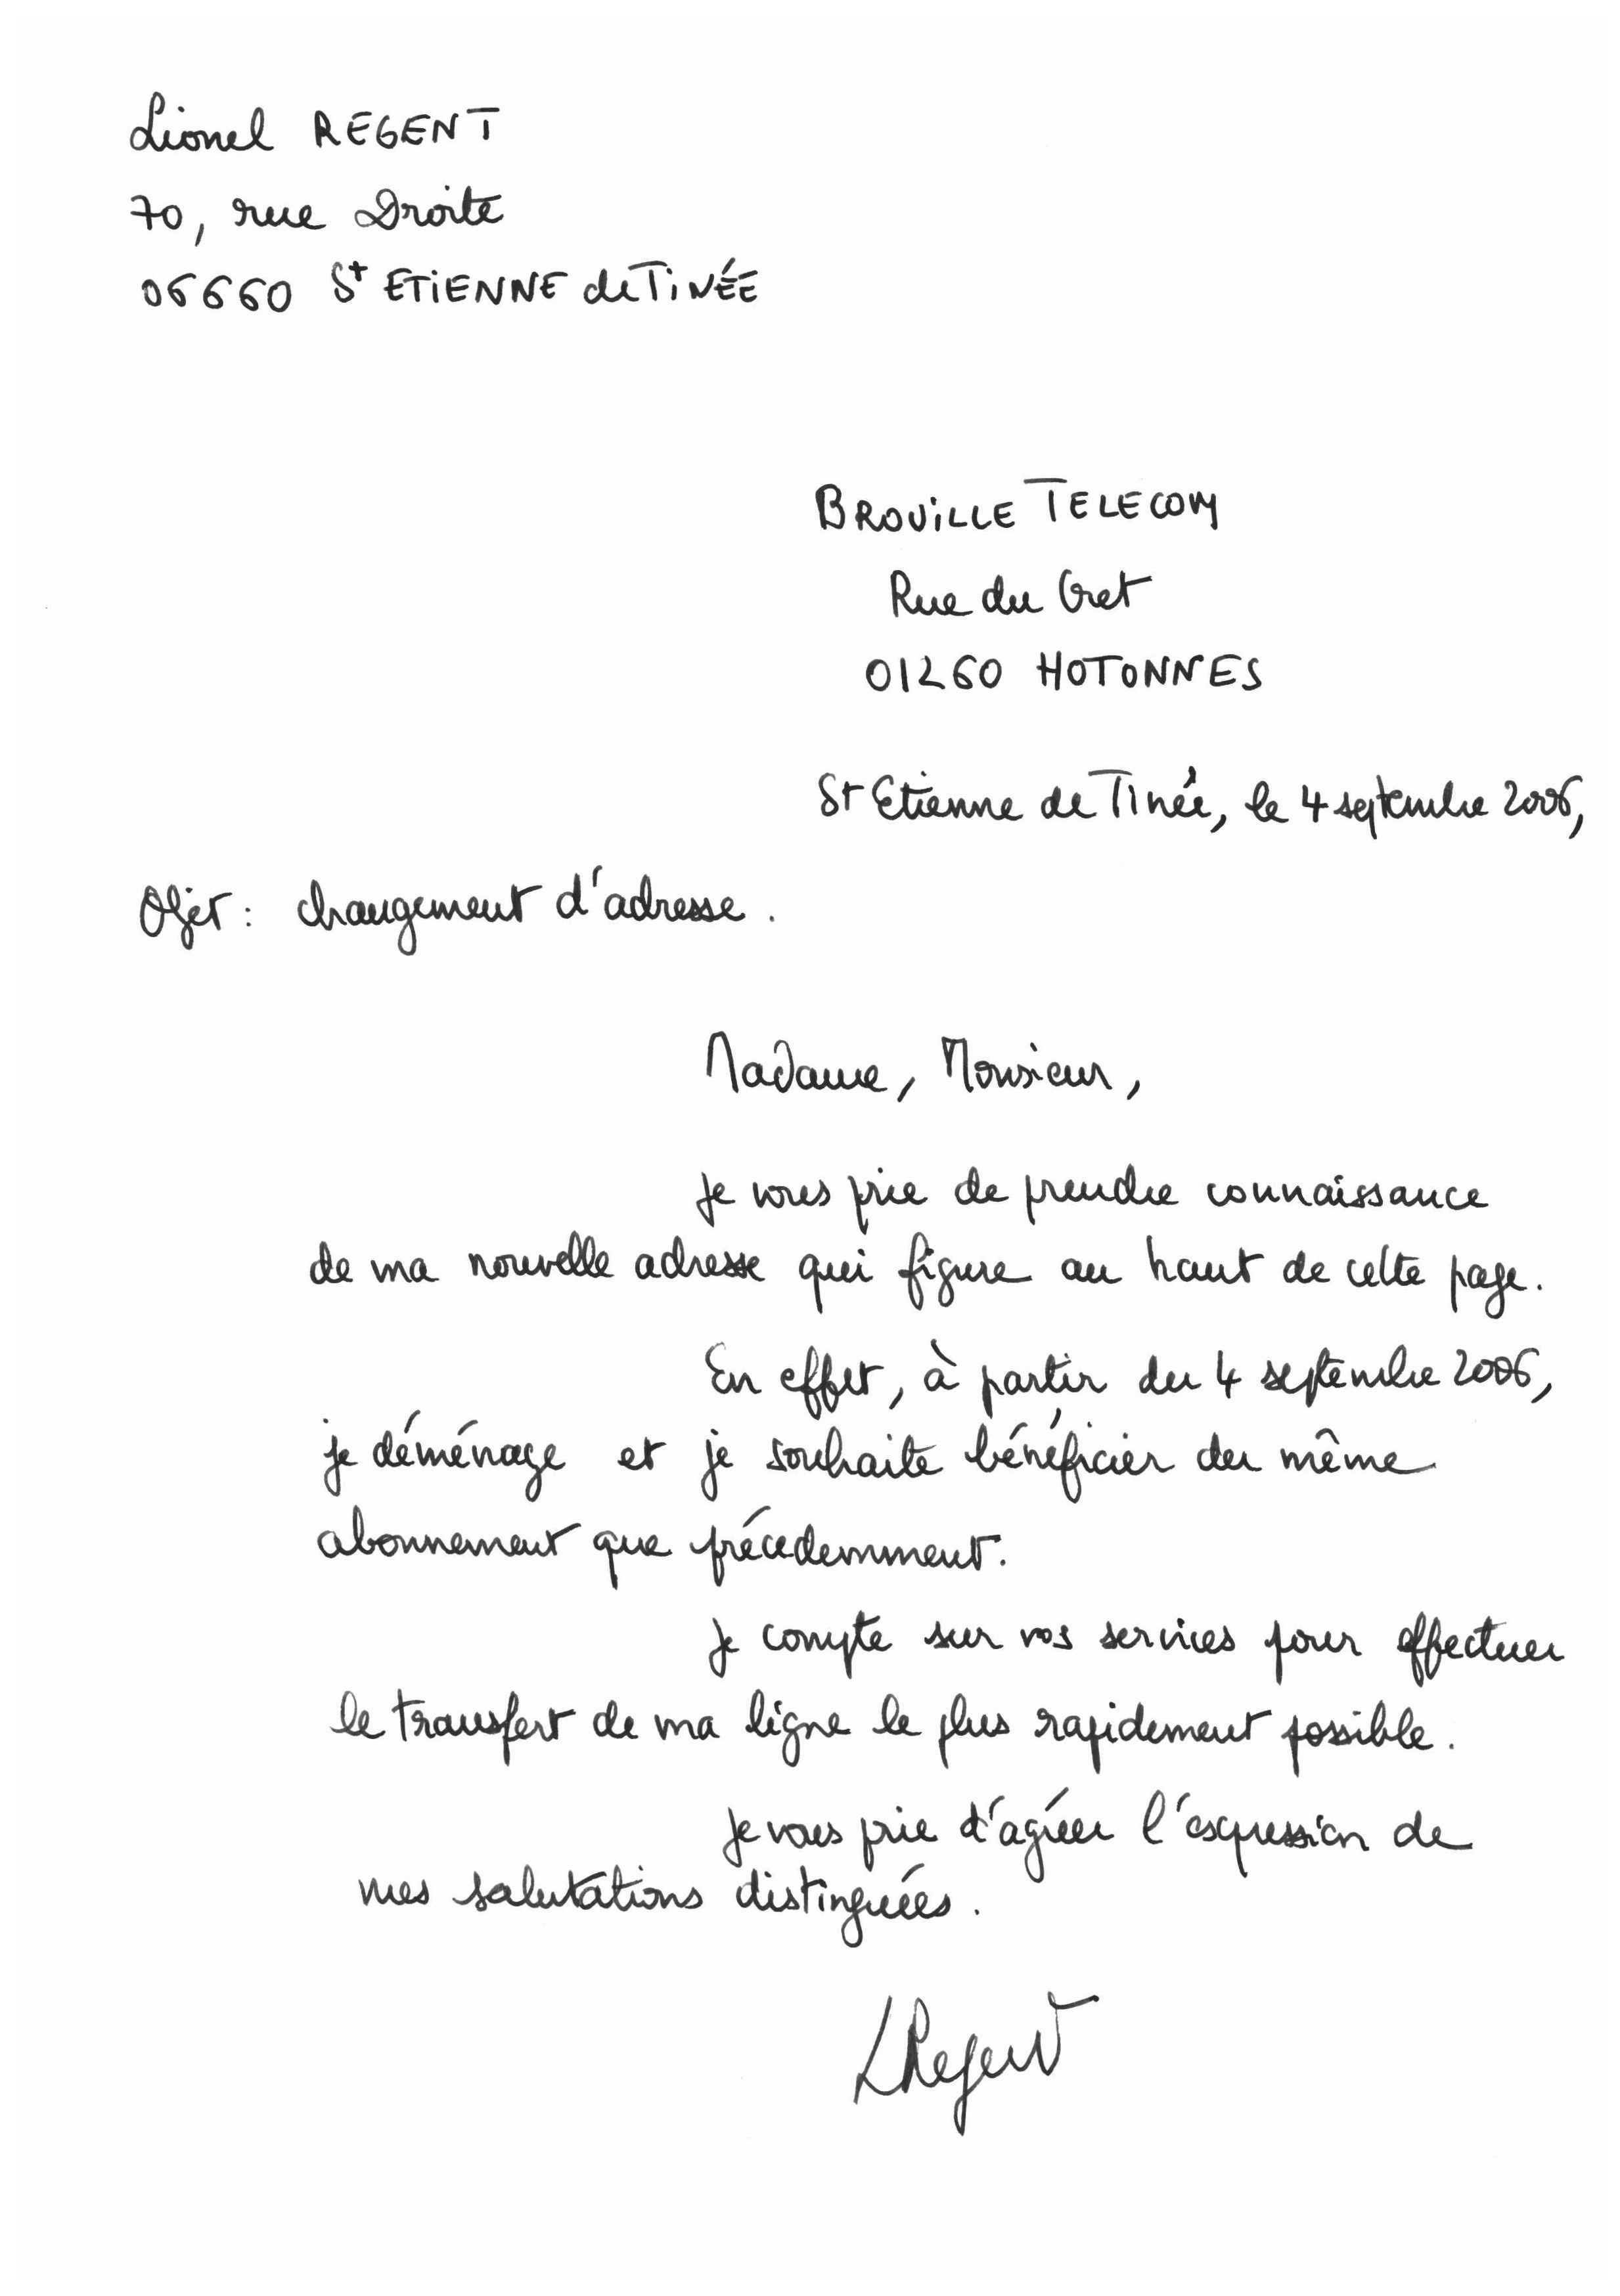 Lionel REGENT
70, rue Droite
06660 St ETIENNE de TINÉE
BROVILLE TELECOM
Rue du Cret
01260 HOTONNES
St Etienne de Tinée, le 4 septembre 2006,
Objet : changement d'adresse.
Madame, Monsieur,
Je vous prie de prendre connaissance
de ma nouvelle adresse qui figure au haut de cette page.
En effet, à partir du 4 septembre 2006,
je déménage et je souhaite bénéficier du même
abonnement que précedemment.
Je compte sur vos services pour effectuer
le transfert de ma ligne le plus rapidement possible.
Je vous prie d'agréer l'expression de
mes salutations distinguées.
LRegent